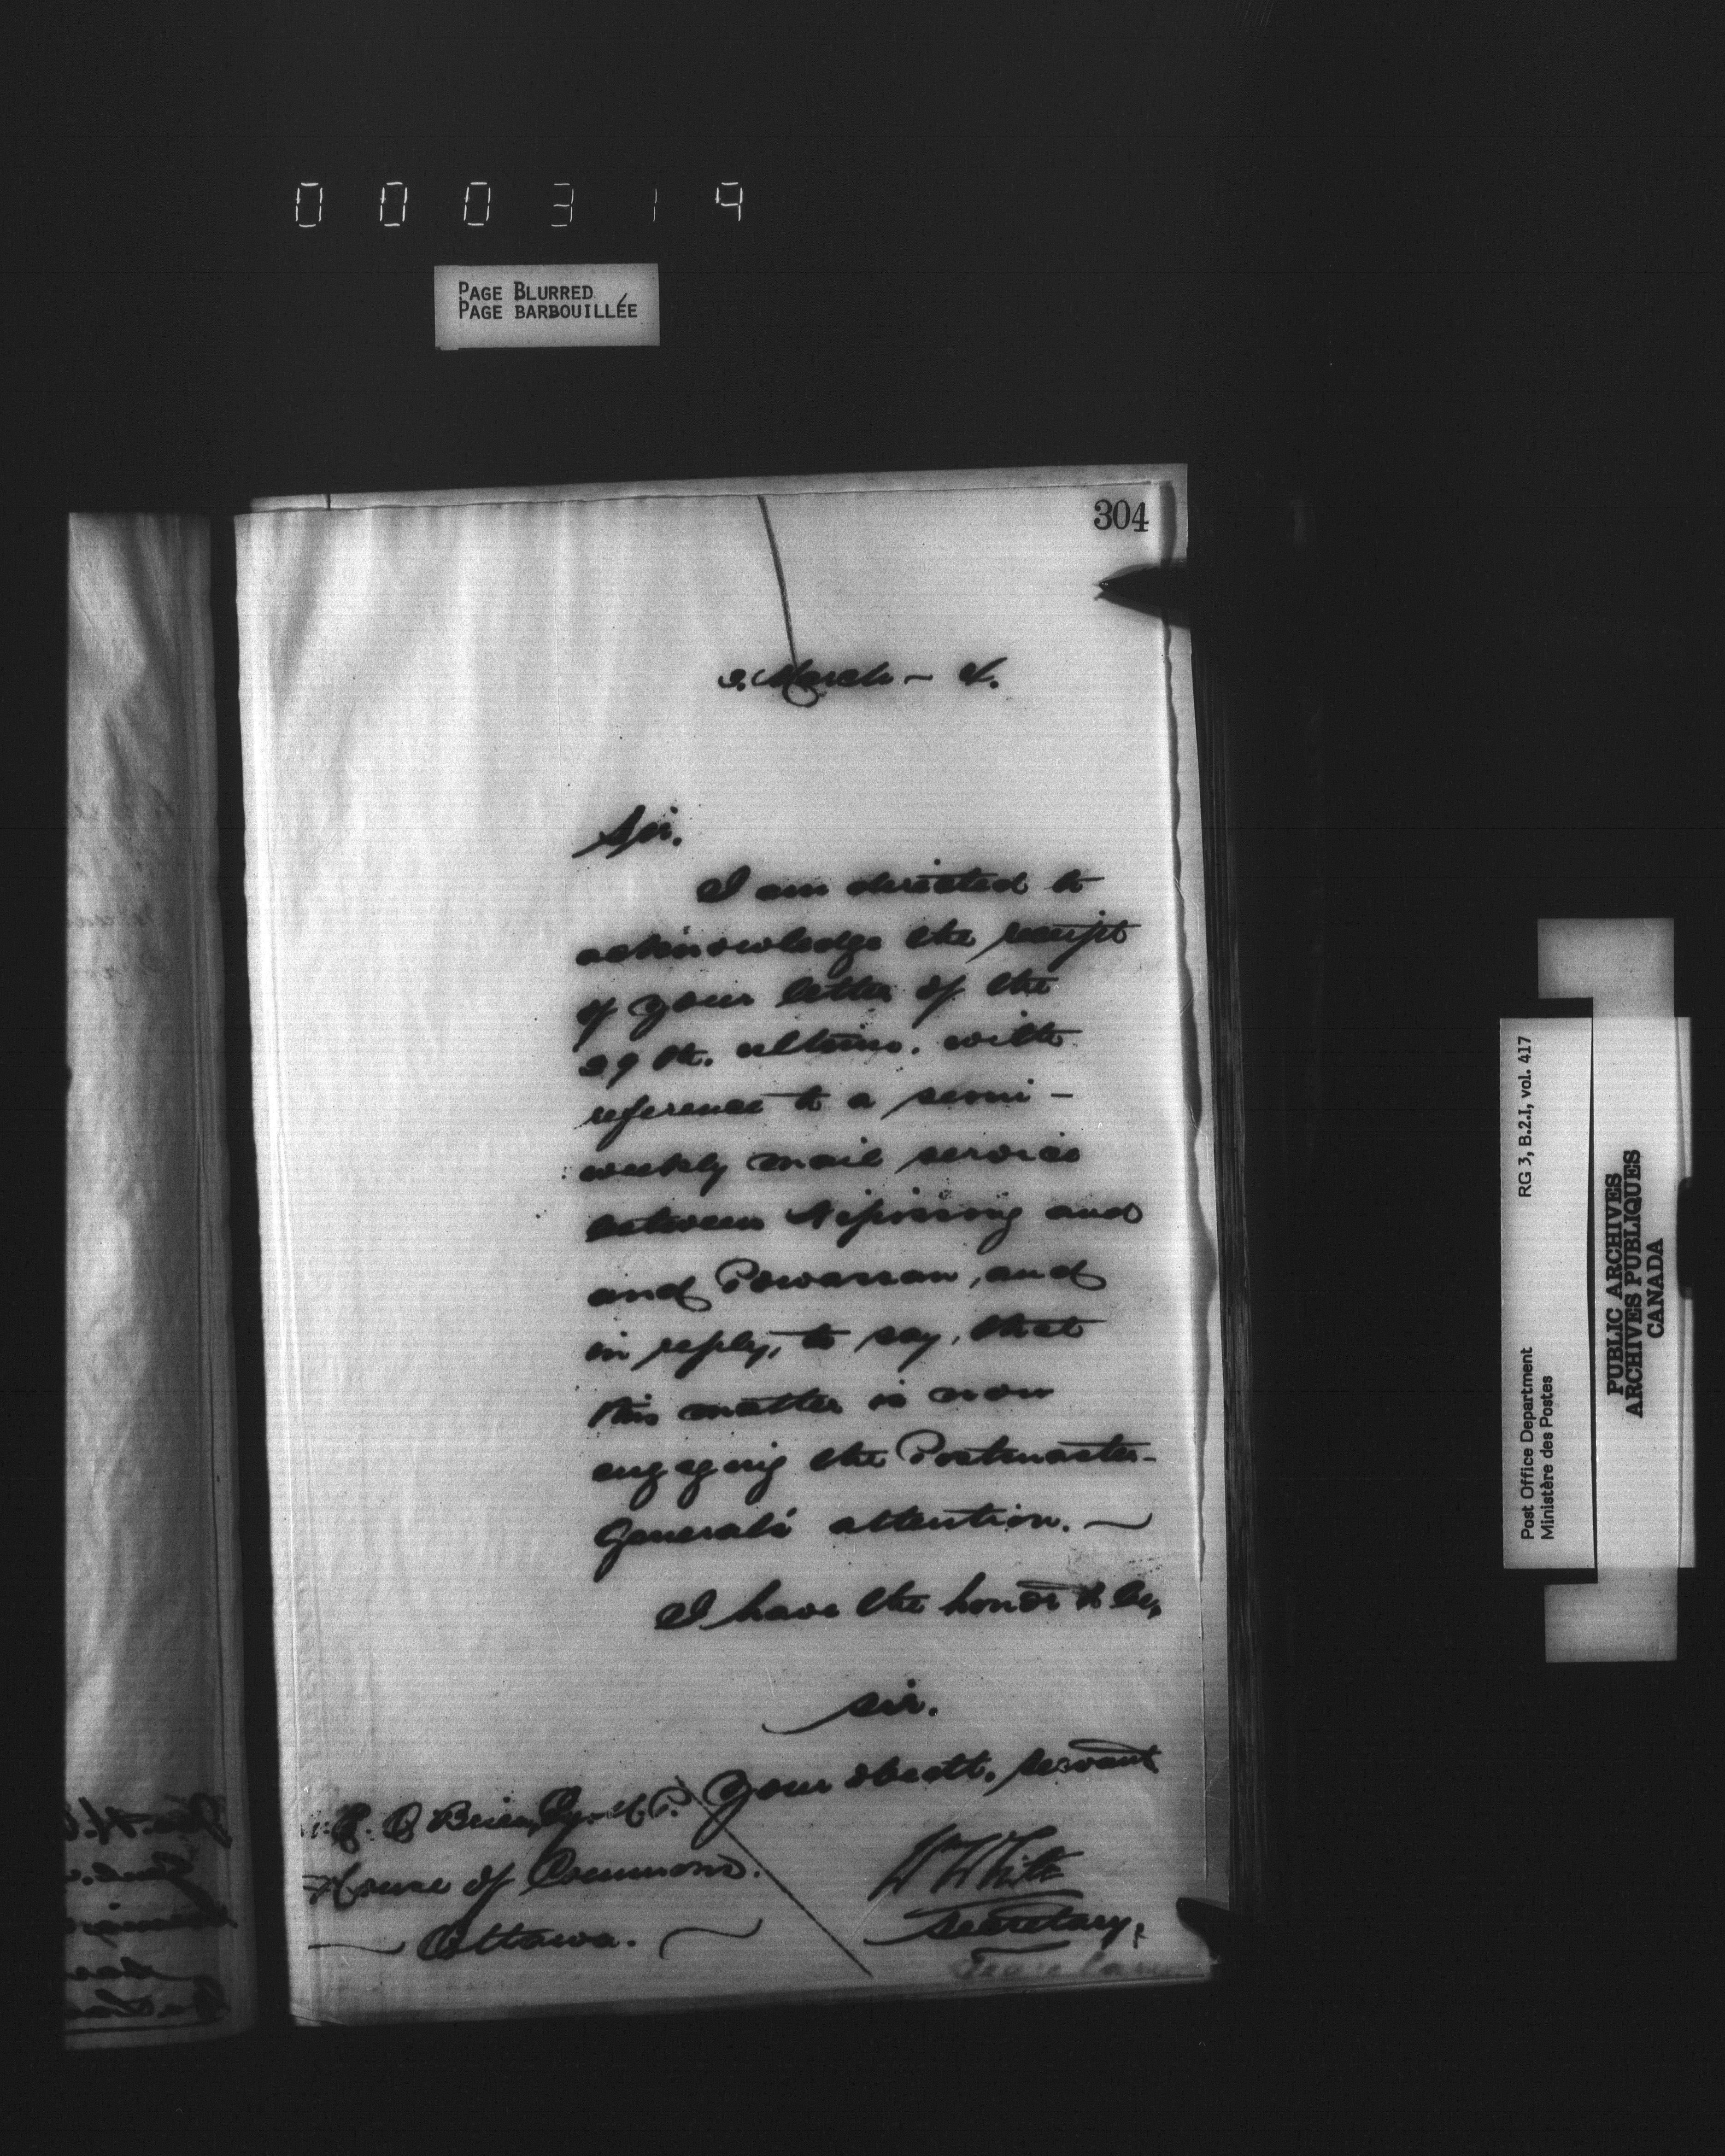 000319
PAGE BLURRED
PAGE BARBOUILLÉE
304
March – 
Sir.
I am directed to
acknowledge the receipt
of your letter of the
29th. ultimo. with
reference to a semi –
weekly mail service
between Nipissing and
and Powassan, and
in reply, to say, that
this matter is now
engaging the Postmaster-
General's attention. —
I have the honor to be,
sir.
Your obedt. servant
O'Brien, Esq. M.P.
House of Commons.
Ottawa.
W White
Secretary,
RG 3, B.2.I, vol. 417
Post Office Department
Ministère des Postes
PUBLIC ARCHIVES
ARCHIVES PUBLIQUES
CANADA